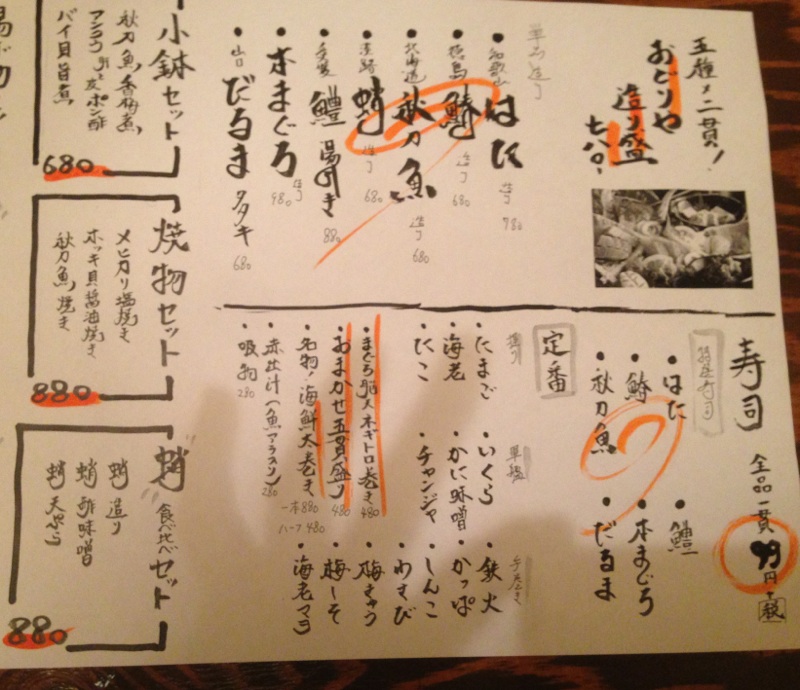 五種〆二貫!
おどりや
造り盛
七八〇
単品造り
・和歌山 はた 造り 780
・徳島 鰆 造り 680
・北海道 秋刀魚 造り 680
・淡路 蛸 造り 680
・愛媛 鱧 湯引き 880
・本まぐろ 造り 980
・山口 だるま タタキ 680
小鉢セット
秋刀魚香梅煮
バイ貝旨煮
680
焼物セット
メヒカリ塩焼き
ホッキ貝醤油焼き
秋刀魚焼き
880
"蛸"食べ比べセット
蛸 造り
蛸 酢味噌
蛸 天ぷら
880
寿司 全品一貫99円+税
・はた
・鰆
・秋刀魚
・鱧
・本まぐろ
・だるま
定番
握り
・たまご
・海老
・たこ
軍艦
・いくら
・かに味噌
・チャンジャ
手巻き
・鉄火
・かっぱ
・しんこ
・わさび
・梅きゅう
・梅しそ
・海老マヨ
・おまかせ五貫盛り 480
・名物!海鮮太巻き 一本880
ハーフ480
・赤出汁(魚アラ入り) 280
・吸物 280